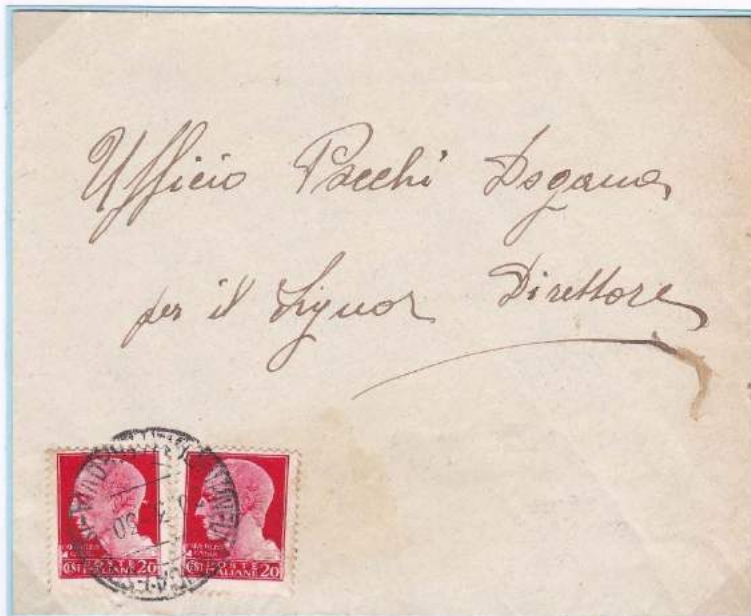 Ufficio Pacchi Dogana
per il Signor Direttore
POSTE
ITALIANE
CEST 20
POSTE
ITALIANE
CEST 20